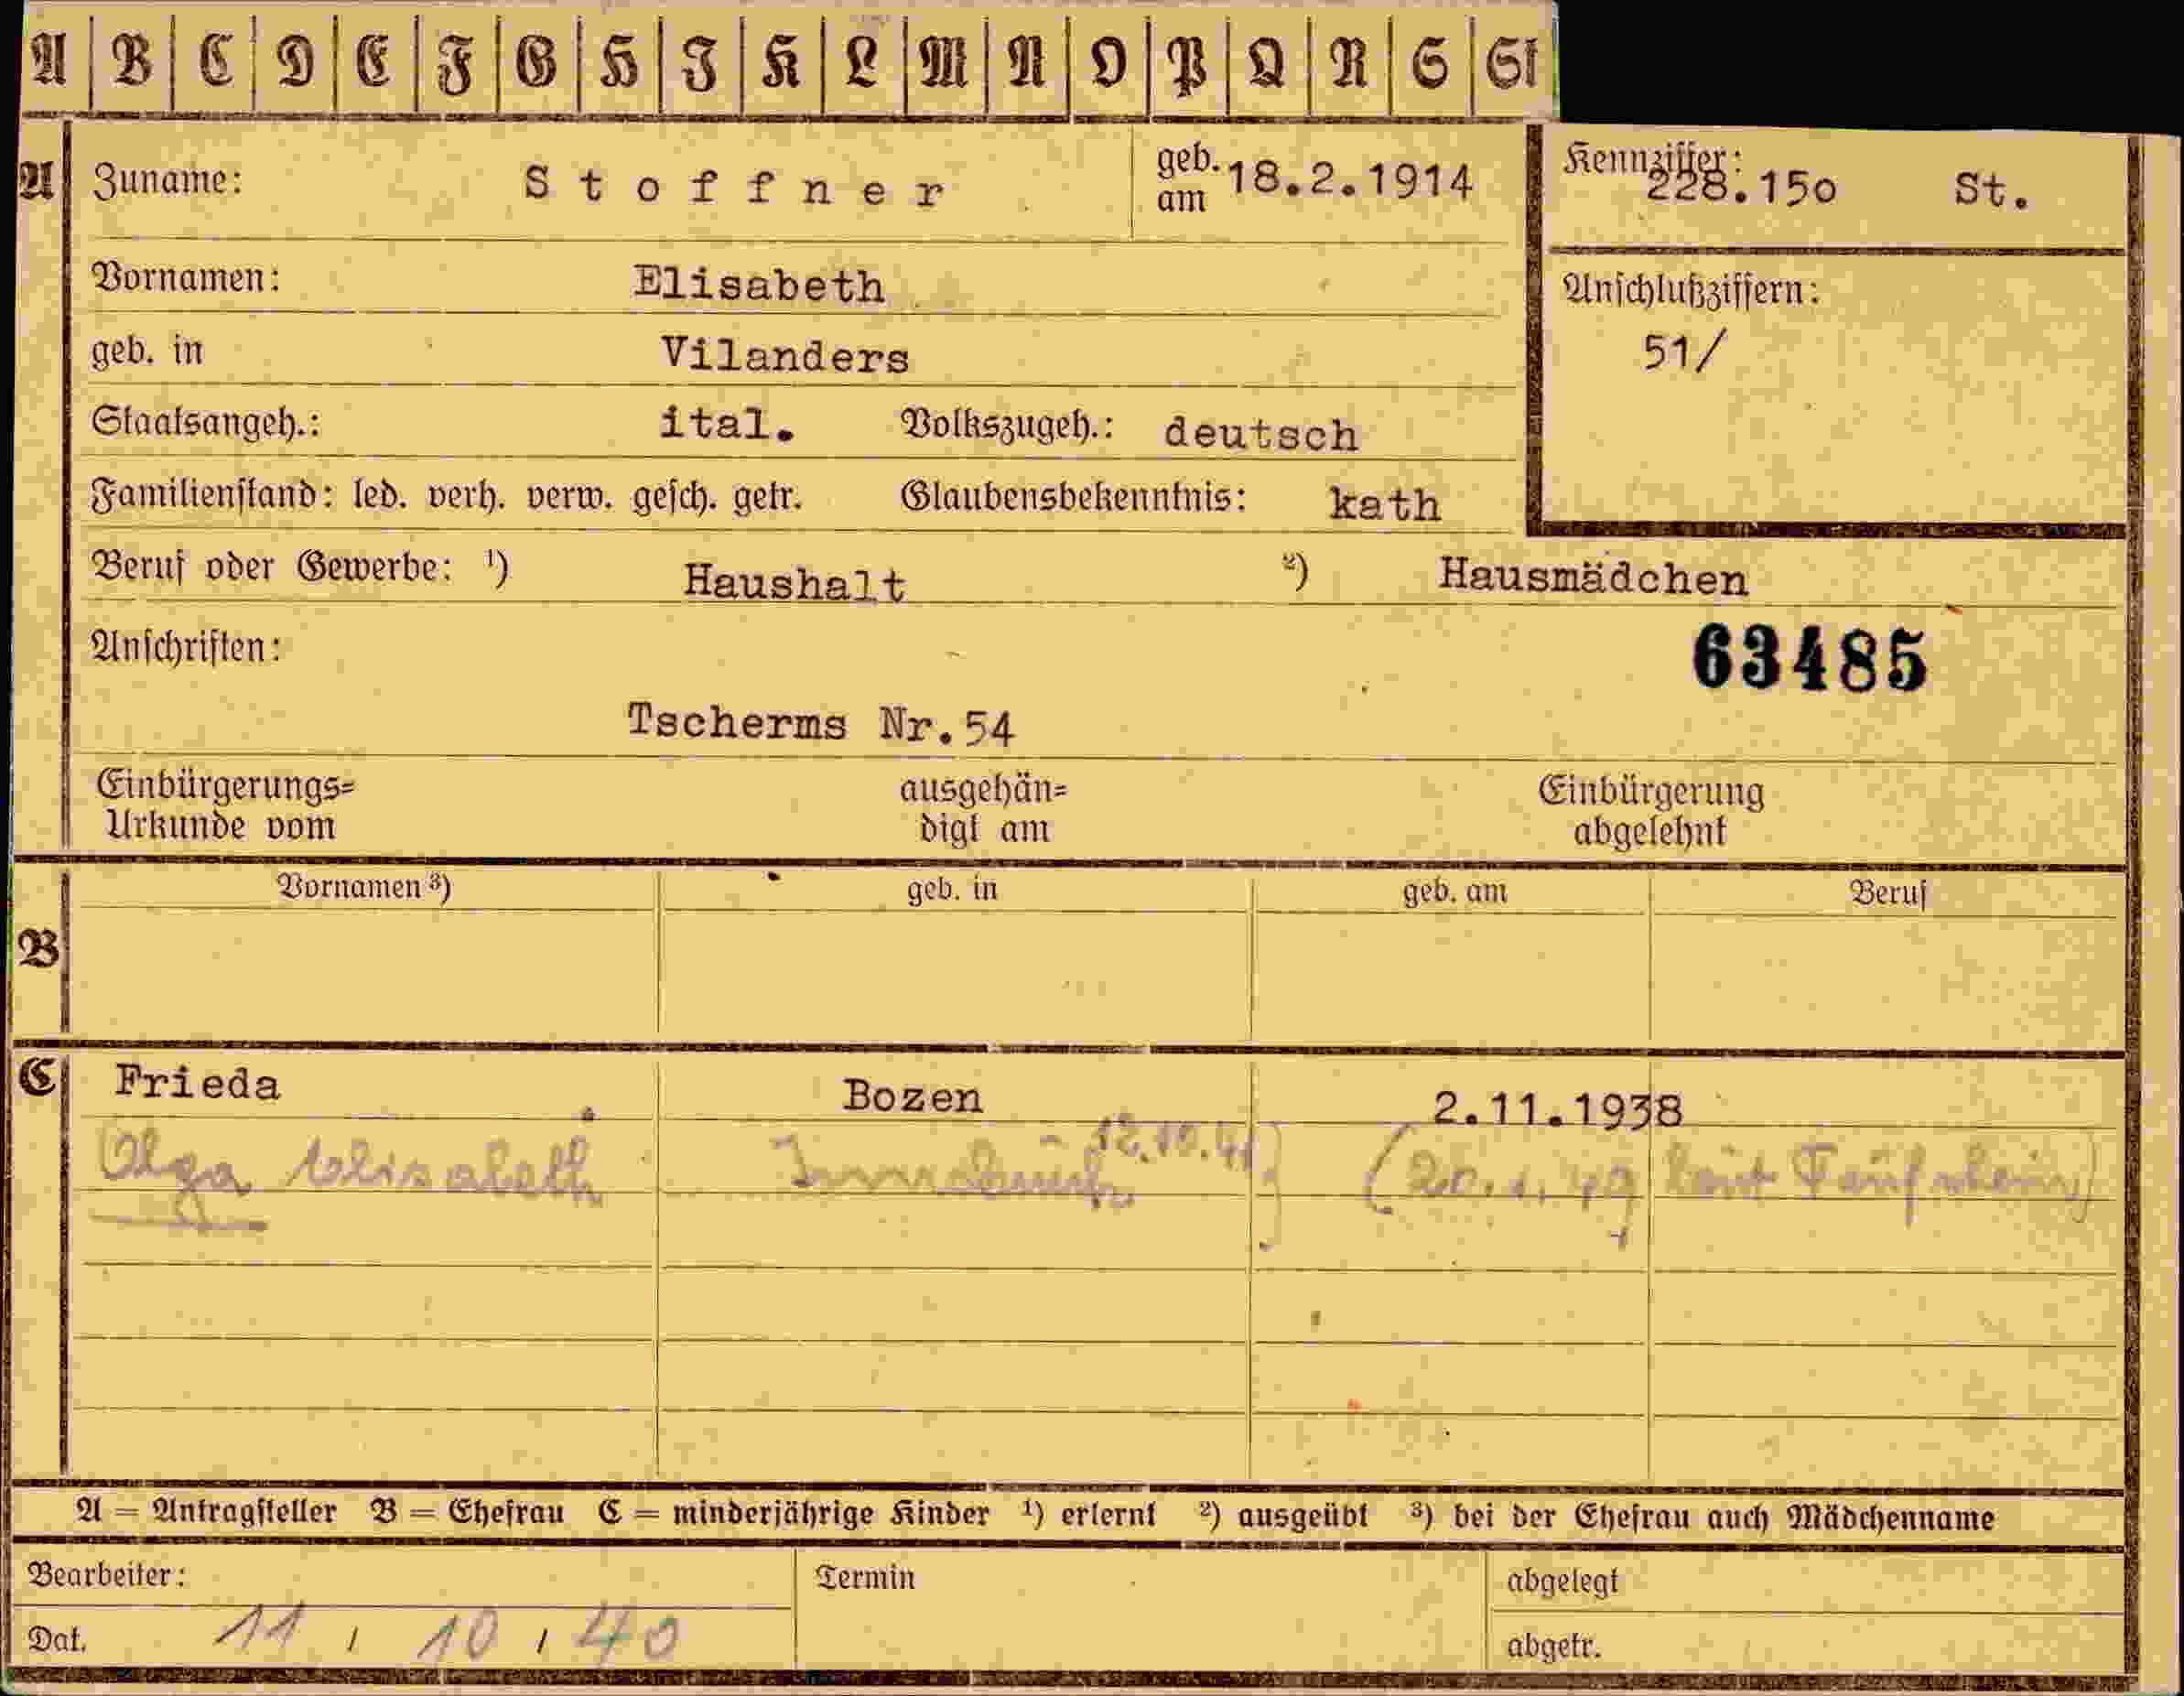 A B C D E F G H I K L M N O P Q R S St
A Zuname: Stoffner geb. am 18.2.1914 Kennziffer: 228.150 St.
Vornamen: Elisabeth Anschlußziffern:
geb. in Vilanders 51/
Staatsangeh.: ital. Volkszugeh.: deutsch
Familienstand: led. verh. verw. gesch. getr. Glaubensbekenntnis: kath
Beruf oder Gewerbe: ¹) Haushalt ²) Hausmädchen
Anschriften: 63485
Tscherms Nr.54
Einbürgerungs= ausgehän= Einbürgerung
Urkunde vom digt am abgelehnt
Vornamen ³) geb. in geb. am Beruf
B
C Frieda Bozen 2.11.1938
Olga Elisabeth Innsbruck 12.10.41 (20.1.49 laut Taufschein)
A = Antragsteller B = Ehefrau C = minderjährige Kinder ¹) erlernt ²) ausgeübt ³) bei der Ehefrau auch Mädchenname
Bearbeiter: Termin abgelegt
Dat. 11 / 10 / 40 abgetr.